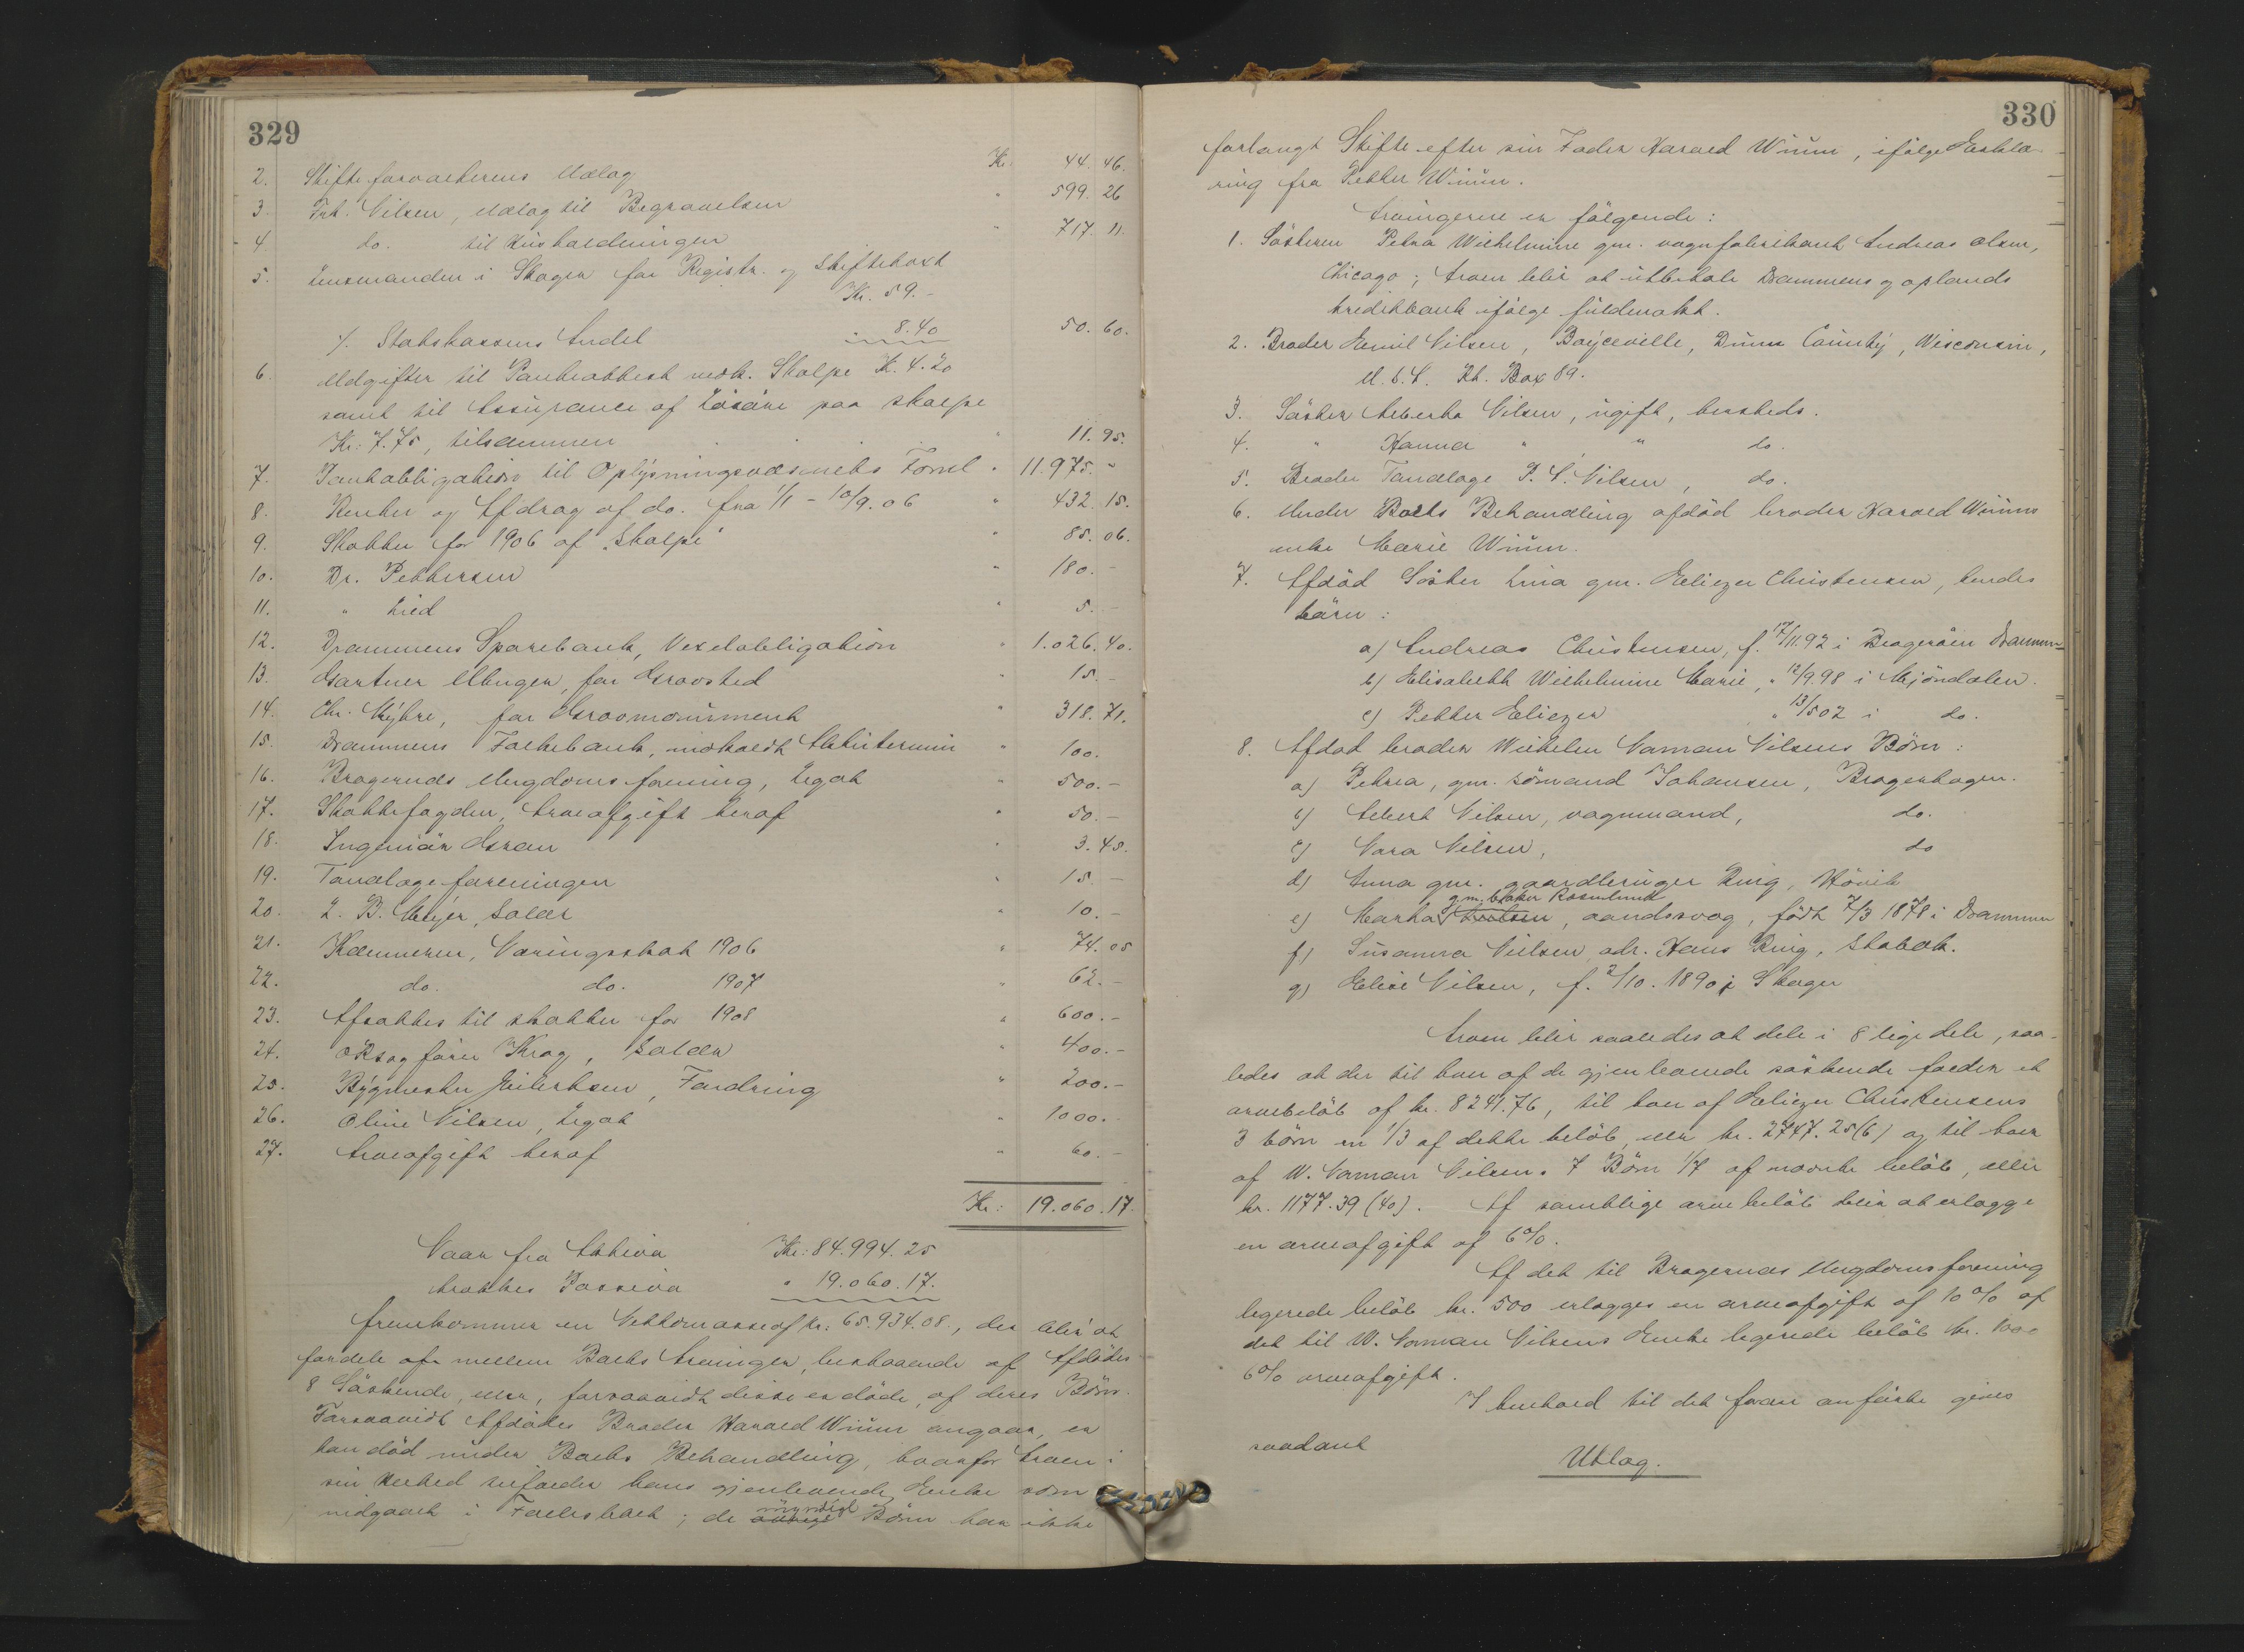 329
2. Skifteforvalterens Udlæg Kr. 44.46.
3. Frk. Nilsen, Udlæg til Begravelsen " 599.26
4 do. til Husholdningen " 717.11.
5. Lensmanden i Skoger for Registr. og Skiftehold
Kr. 59.-
÷ Statskassens Andel " 8.40 50.60.
6. Udgifter til Panteattest vedk. Skalpe Kr. 4.20
samt til Assurance af Løsøre paa Skalpe
Kr: 7.75, tilsammen " 11.95.
7. Panteobligation til Oplysningsvæsenets Fond " 11.975.-
8. Renter og Afdrag af do. fra 1/1 - 10/9.06 " 432.15.
9. Skatter for 1906 af "Skalpe" " 85.06.
10. Dr. Pettersen " 180.-
11. " Lied " 5.-
12. Drammens Sparebank, Vexelobligation " 1.026.40.
13. Gartner Ellingen, for Gravsted " 15.-
14. Chr. Myhre, for Gravmonument " 318.71.
15. Drammens Folkebank, indkaldt Aktietermin " 100.
16. Bragernæs Ungdomsforening, Legat " 500.-
17. Skattefogden, Arveafgift heraf " 50.-
18. Ingeniør Gran " 3.45.
19. Tandlægeforeningen " 15.-
20. L. B. Meyer, Saldo " 10.-
21. Kæmneren, Næringsskat 1906 " 74.05
22. do. do. 1907 " 62.-
23. Afsættes til skatter for 1908 " 600.-
24. O.R.sagfører Krag, Salær " 400.-
25. Bygmester Eilertsen, Fordring " 200.-
26. Oline Nilsen, Legat " 1000.-
27. Arveafgift heraf " 60.-
Kr: 19.060.17.
Naar fra Aktiva Kr: 84.994.25
trækkes Passiva " 19.060.17.
fremkommer en Nettomasse af Kr: 65.934.08., der blir at
fordele mellem Boets Arvinger, bestaaende af Afdødes
8 Søskende, eller, forsaavidt disse er døde, af deres Børn.
Forsaavidt Afdødes Broder Harald Wiium angaar, er
han død under Boets Behandling, hvorfor Arven i
sin Helhed tilfalder hans gjenlevende Enke som
indgaaet i Fællesboet; de myndige Børn har ikke
330
forlangt Skifte efter sin Fader Harald Wiium, ifølge Erklæ-
ring fra Petter Wiium.
Arvingerne er følgende:
1. Søsteren Petra Wilhelmine gm. vognfabrikant Andreas Olsen,
Chicago; Arven blir at utbetale Drammens og oplands
kreditbank ifølge fuldmakt.
2. Broder Emil Nilsen, Boyceville, Dunn County, Wisconsin,
U.S.A. Rt. Box 89.
3. Søster Alberta Nilsen, ugift, hersteds.
4. " Hanna " , " do.
5. Broder Tandlæge P. A. Nilsen, do.
6. Under Boets Behandling afdød broder Harald Wiiums
enke Marie Wiium.
7. Afdød Søster Lina gm. Eliezer Christensen, hendes
børn:
a) Andreas Christensen, f. 17/11.92 i Bragerøen Drammen
b) Elisabeth Wilhelmine Marie, " 12/9.98 i Mjøndalen.
c) Petter Eliezer " 13/5 02 i do.
8. Afdød broder Wilhelm Norman Nilsens Børn:
a) Petrea, gm. sømand Johansen, Bragerhagen.
b) Albert Nilsen, vognmand, do.
c) Nora Nilsen, do
d) Anna gm. gaardbruger Ring, Høvik
gm. bager Rosenlund
e) Martha Nilsen, aandssvag, født 7/3 1878 i Drammen
f) Susanna Nilsen, adr. Hans Ring, Stabæk.
g) Elise Nilsen, f. 2/10. 1890 i Skoger
Arven blir saaledes at dele i 8 lige dele, saa-
ledes at der til hver af de gjenlevende søskende falder et
arvebeløb af kr. 8241.76, til hver af Eliezer Christensens
3 børn en 1/3 af dette beløb, eller kr. 2747.25(6) og til hver
af W. Norman Nilsens 7 Børn 1/7 af nævnte beløb, eller
kr. 1177.39 (40). Af samtlige arvebeløb blir at erlægge
en arveafgift af 6%.
Af det til Bragernæs Ungdomsforening
legerede beløb kr. 500 erlægges en arveafgift af 10% af
det til W. Norman Nilsens Enke legerede beløb kr. 1000
6% arveafgift.
I henhold til det foran anførte gives
saadant
Utlæg.